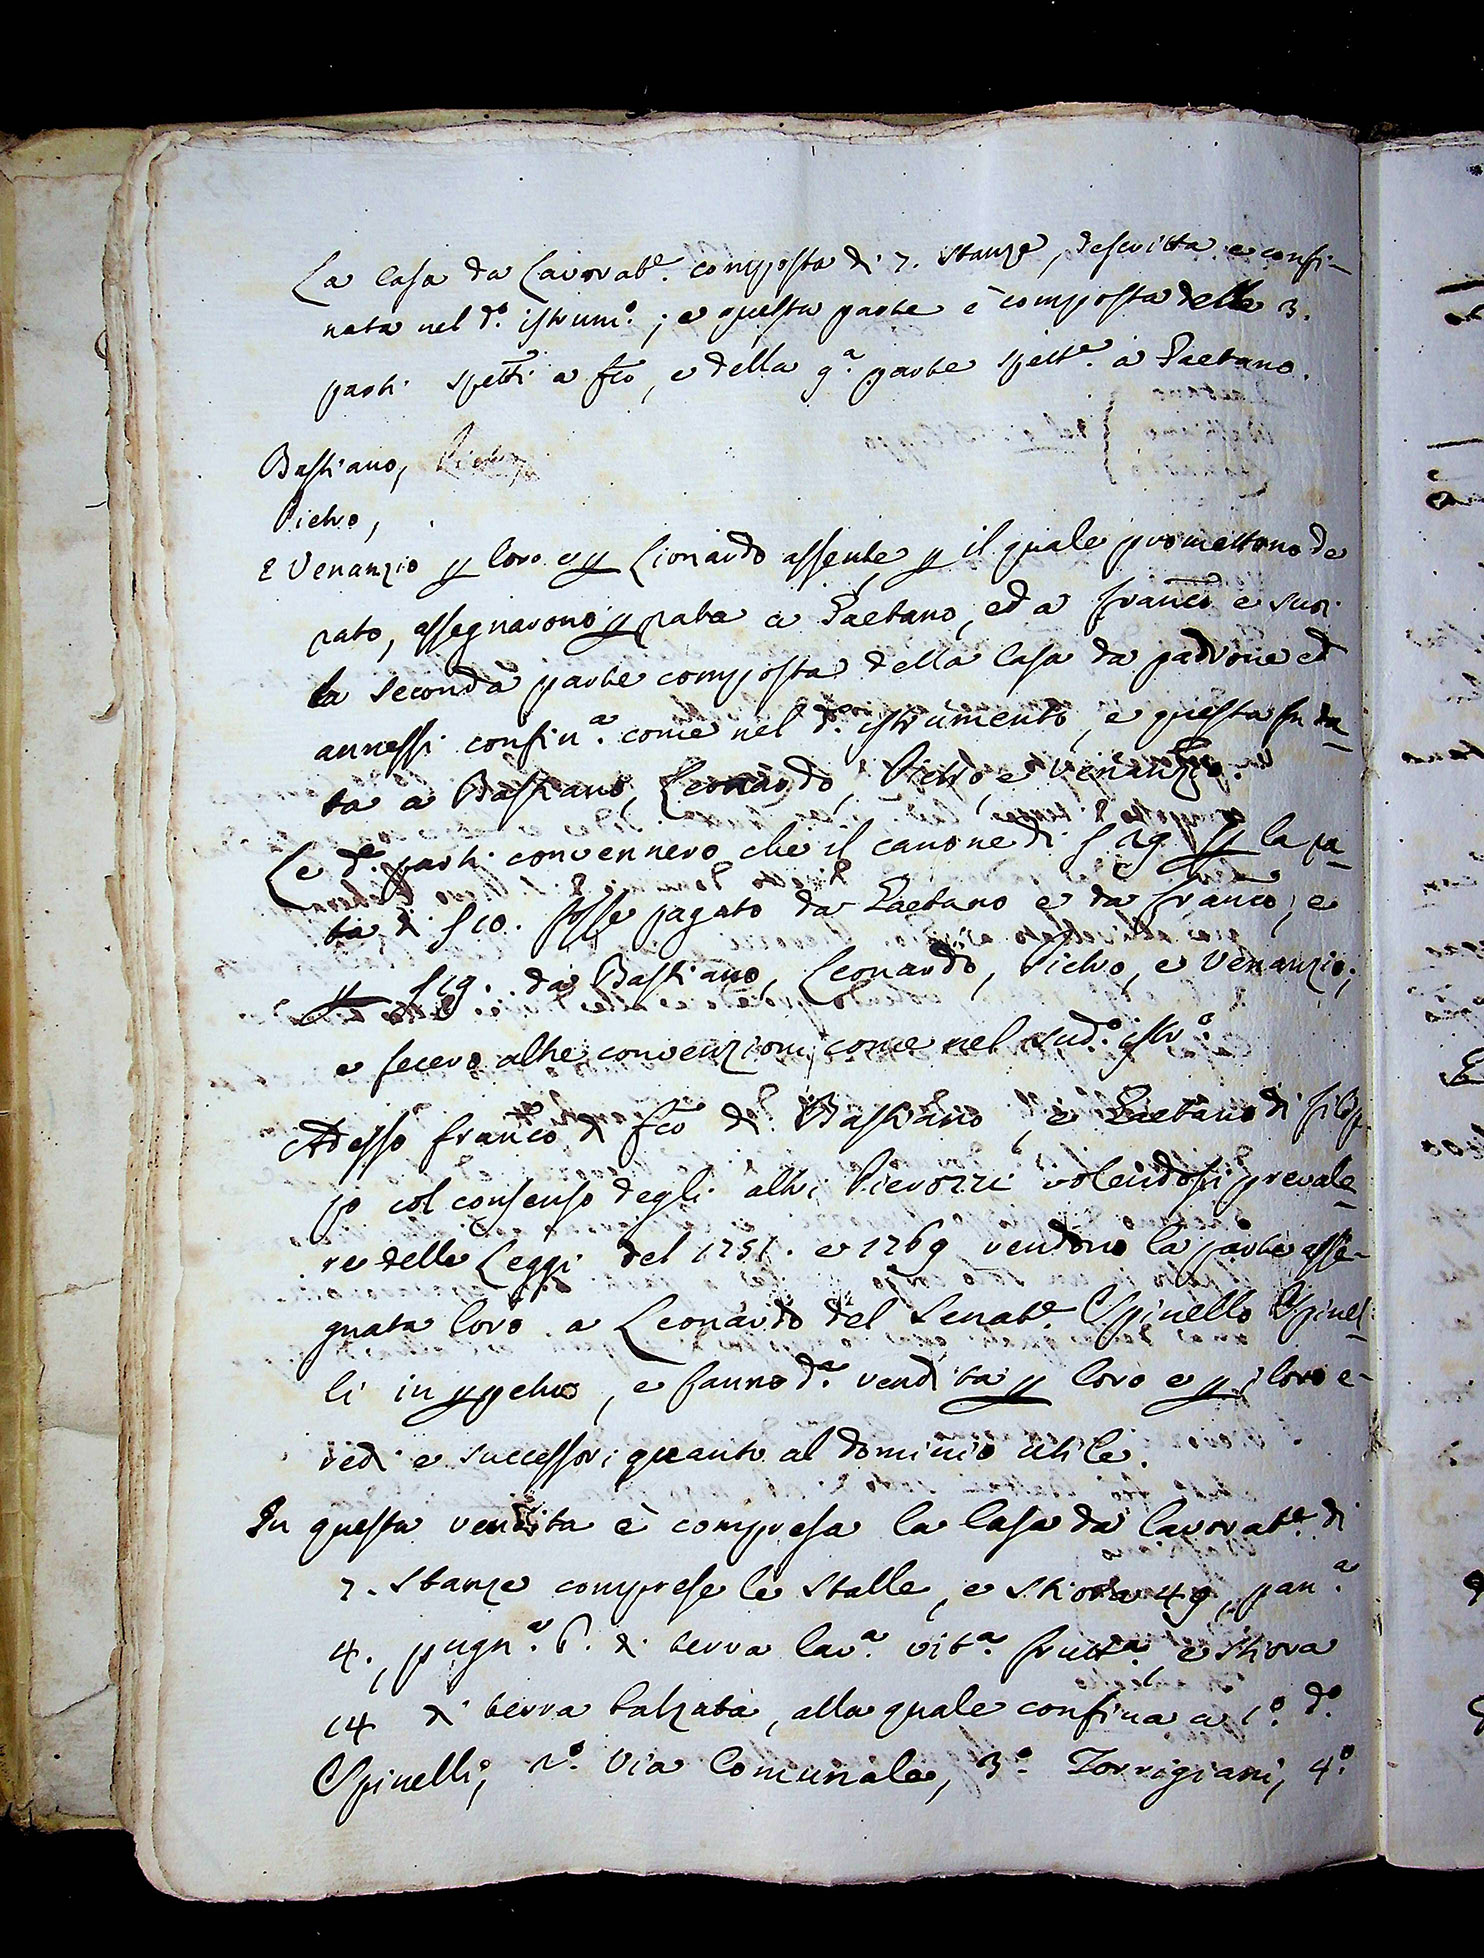 La Casa da Lavorat.e composta di 7. stanze, descritta e confi-
nata nel d.o istrum.o; e questa parte è composta delle 3.
parti spett.i a fco, e della 4.a parte spett.e a Gaetano.
Bastiano, Pietro,
Pietro,
E Venanzio p loro e p Lionardo assente, p il quale promettono de
rato, assegnarono p rata a Gaetano, ed a Franco e suoi
la seconda parte composta della Casa da padrone ed
annessi confin.a come nel d.o istrumento, e questa fu da-
ta a Bastiano, Leonardo, Pietro, e Venanzio.
Le d.e parti convennero che il canone di f 29 p la ra-
ta di f 10. fosse pagato da Gaetano e da Franco, e
p f 19. da Bastiano, Leonardo, Pietro, e Venanzio;
e fecero altre convenzioni come nel sud.o istr.o
Adesso Franco di fco di Bastiano, e Gaetano di Filip-
po col consenso degli altri Pierozzi volendosi prevale-
re delle Leggi del 1751. e 1769 vendono la parte asse-
gnata loro a Leonardo del Senat.e Spinello Spinel-
li in ppetuo, e fanno d.a vendita p loro e p i loro e-
redi e successori quanto al dominio utile.
In questa vendita è compresa la Casa da lavorat.e di
7. stanze comprese le stalle, e stiora 49, pan.a
4., pugn.a 6. di terra lav.a vit.a frutt.a e stiora
14 di terra balzata, alla quale confina a 1.o d.o
Spinelli, 2.o Via Comunale, 3.o Torrigiani, 4.o